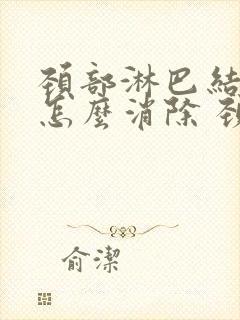 頚部淋巴結
怎麼消除 頚
俞潔